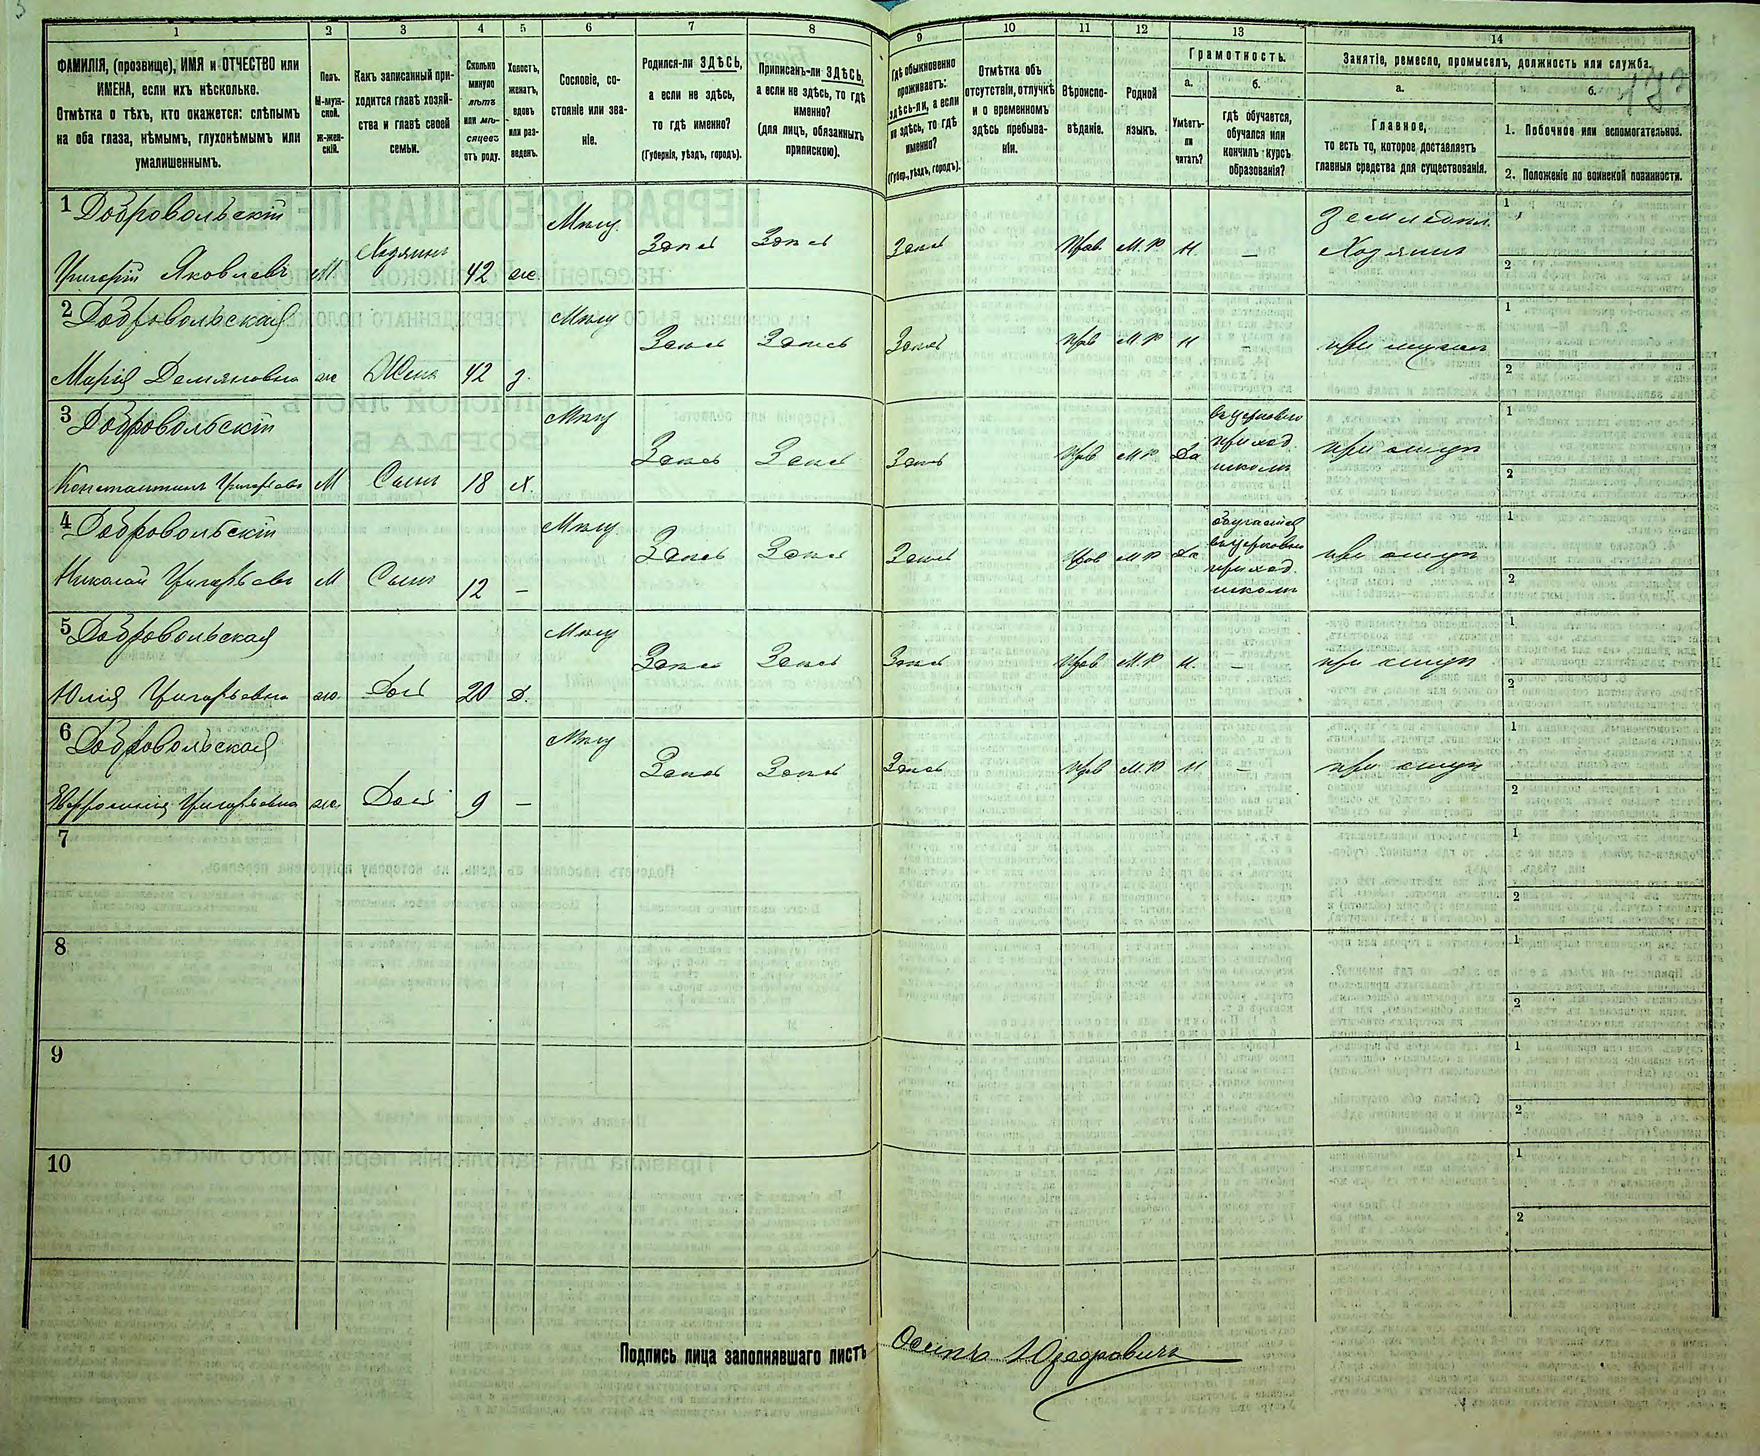 1 2 3 4 5 6 7 8 9 10 11 12 13 14
ФАМИЛІЯ, (прозвище), ИМЯ и ОТЧЕСТВО или
ИМЕНА, если ихъ нѣсколько.
Отмѣтка о тѣхъ, кто окажется: слѣпымъ
на оба глаза, нѣмымъ, глухонѣмымъ или
умалишеннымъ.
Полъ.
М-муж-
ской.
ж-жен-
скій.
Какъ записанный при-
ходится главѣ хозяй-
ства и главѣ своей
семьи.
Сколько
минуло
лѣтъ
или мѣ-
сяцевъ
отъ роду.
Холостъ,
женатъ,
вдовъ
или раз-
веденъ.
Сословіе, со-
стояніе или зва-
ніе.
Родился-ли ЗДѢСЬ,
а если не здѣсь,
то гдѣ именно?
(Губернія, уѣздъ, городъ).
Приписанъ-ли ЗДѢСЬ,
а если не здѣсь, то гдѣ
именно?
(для лицъ, обязанныхъ
припискою).
Гдѣ обыкновенно
проживаетъ:
здѣсь-ли, а если
не здѣсь, то гдѣ
именно?
(Губер., уѣздъ, городъ).
Отмѣтка объ
отсутствіи, отлучкѣ
и о временномъ
здѣсь пребыва-
ніи.
Вѣроиспо-
вѣданіе.
Родной
языкъ.
Грамотность.
а.
Умѣетъ-
ли
читать?
б.
гдѣ обучается,
обучался или
кончилъ курсъ
образованія?
Занятіе, ремесло, промыселъ, должность или служба.
а.
Главное,
то есть то, которое доставляетъ
главныя средства для существованія.
б.
1. Побочное или вспомогательное.
2. Положеніе по воинской повинности.
1 Добровольскій
Григорій Яковлевъ М. Хозяинъ 42 ж. Мѣщ. Здѣсь Здѣсь Здѣсь Прав. М. Р Н. — Земледѣл.
Хозяинъ
1
2
2 Добровольская
Марія Демяновна ж Жена 42 з. Мѣщ Здѣсь Здѣсь Здѣсь Прав М. Р Н — при мужѣ
1
2
3 Добровольскій
Константинъ Григорьевъ М Сынъ 18 х. Мѣщ Здѣсь Здѣсь Здѣсь Прав М Р Да въ церковно
приход.
школѣ
при отцѣ
1
2
4 Добровольскій
Николай Григорьевъ М Сынъ 12 — Мѣщ. Здѣсь Здѣсь Здѣсь Прав М Р Да обучается
въ церковно
приход.
школѣ
при отцѣ
1
2
5 Добровольская
Юлія Григорьевна ж. Дочь 20 Д. Мѣщ Здѣсь Здѣсь Здѣсь Прав М. Р Н. — при отцѣ
1
2
6 Добровольская
Евфросинія Григорьевна ж. Дочь 9 — Мѣщ Здѣсь Здѣсь Здѣсь Прав М. Р Н — при отцѣ
1
2
7
1
2
8
1
2
9
1
2
10
1
2
Подпись лица заполнявшаго листъ Осипъ